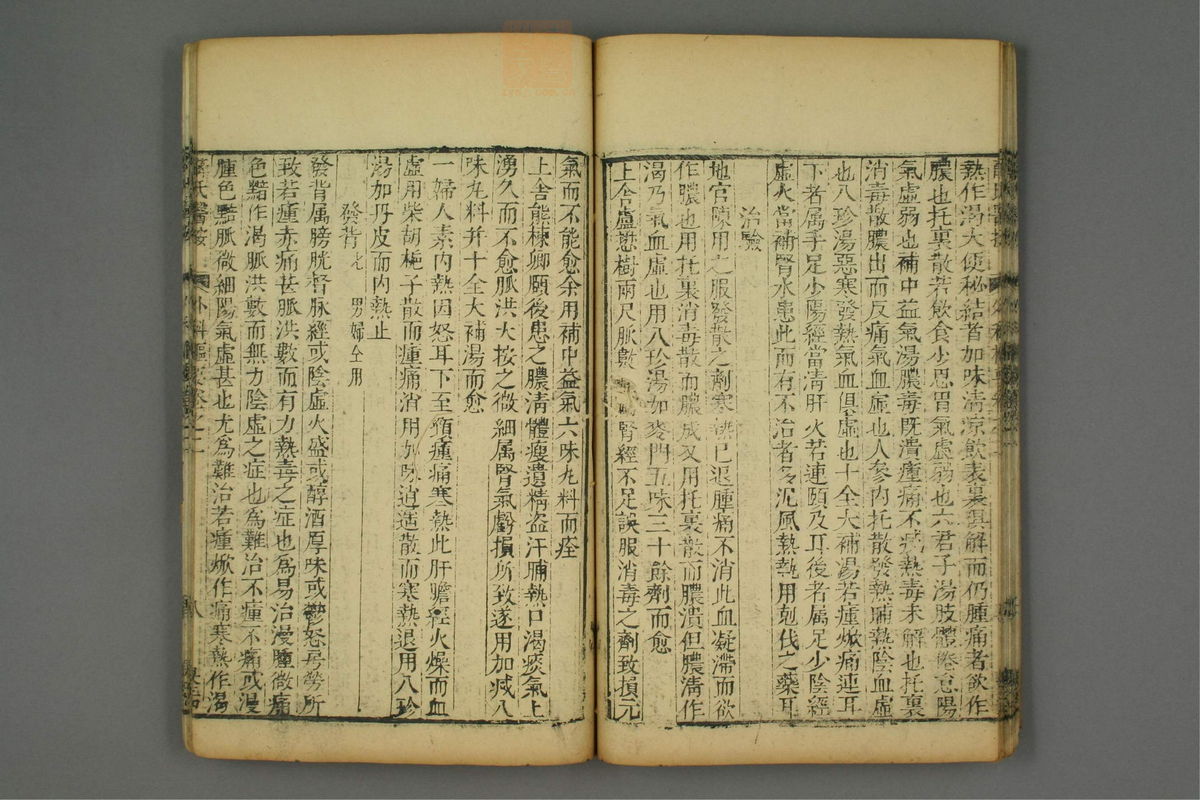 熱作渴大便秘結者加味清涼飲表裏俱解而仍腫痛者欲作
膿也托裏散若飲食少思胃氣虛弱也六君子湯肢體倦怠陽
氣虛弱也補中益氣湯膿毒既潰瘇痛不減熱毒未解也托裏
消毒散膿出而反痛氣血虛也人參內托散發熱晡熱陰血虛
也八珍湯惡寒發熱氣血俱虛也十全大補湯若瘇焮痛連耳
下者属手足少陽經當清肝火若連頤及耳後者属足少陰經
虛火當補腎水患此而有不治者多沉風熱執用剋伐之藥耳
治驗
地官陳用之服發散之劑寒熱已退腫痛不消此血凝滯而欲
作膿也用托裏消毒散而膿成又用托裏散而膿潰但膿清作
渴乃氣血虛也用八珍湯加麥門五味三十餘劑而愈
上舍盧懋樹兩尺脈數 腎經不足誤服消毒之劑致損元
氣而不能愈余用補中益氣六味丸料而痊
上舍熊棟卿頤後患之膿清體瘦遺精盗汗晡熱口渴痰氣上
湧久而不愈脈洪大按之微細属腎氣虧損所致遂用加减八
味丸料并十全大補湯而愈
一婦人素內熱因怒耳下至頸瘇痛寒熱此肝膽經火燥而血
虛用柴胡梔子散而瘇痛消用加味逍遥散而寒熱退用八珍
湯加丹皮而內熱止
發背七 男婦仝用
發背属膀胱督脉經或陰虛火盛或醇酒厚味或鬱怒房勞所
致若瘇赤痛甚脈洪數而有力熱毒之症也為易治漫腫微痛
色黯作渴脈洪數而無力陰虛之症也為難治不瘇不痛或漫
腫色黯脈微細陽氣虛甚也尤為難治若瘇焮作痛寒熱作渴
薛氏醫按 外科樞要卷之二 八